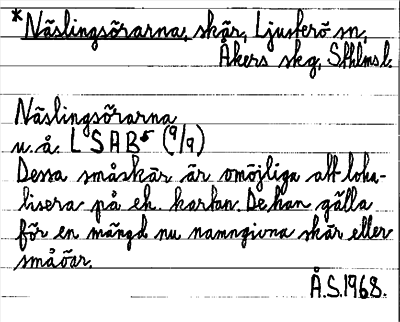 *Näslingsörarna, skär, Ljusterö sn,
Åkers skg, Sthlms l.
Näslingsörarna
u. å. LSAB5 (9/9)
Dessa småskär är omöjliga att loka-
lisera på ek. kartan. De kan gälla
för en mängd nu namngivna skär eller
småöar.
Å.S. 1968.